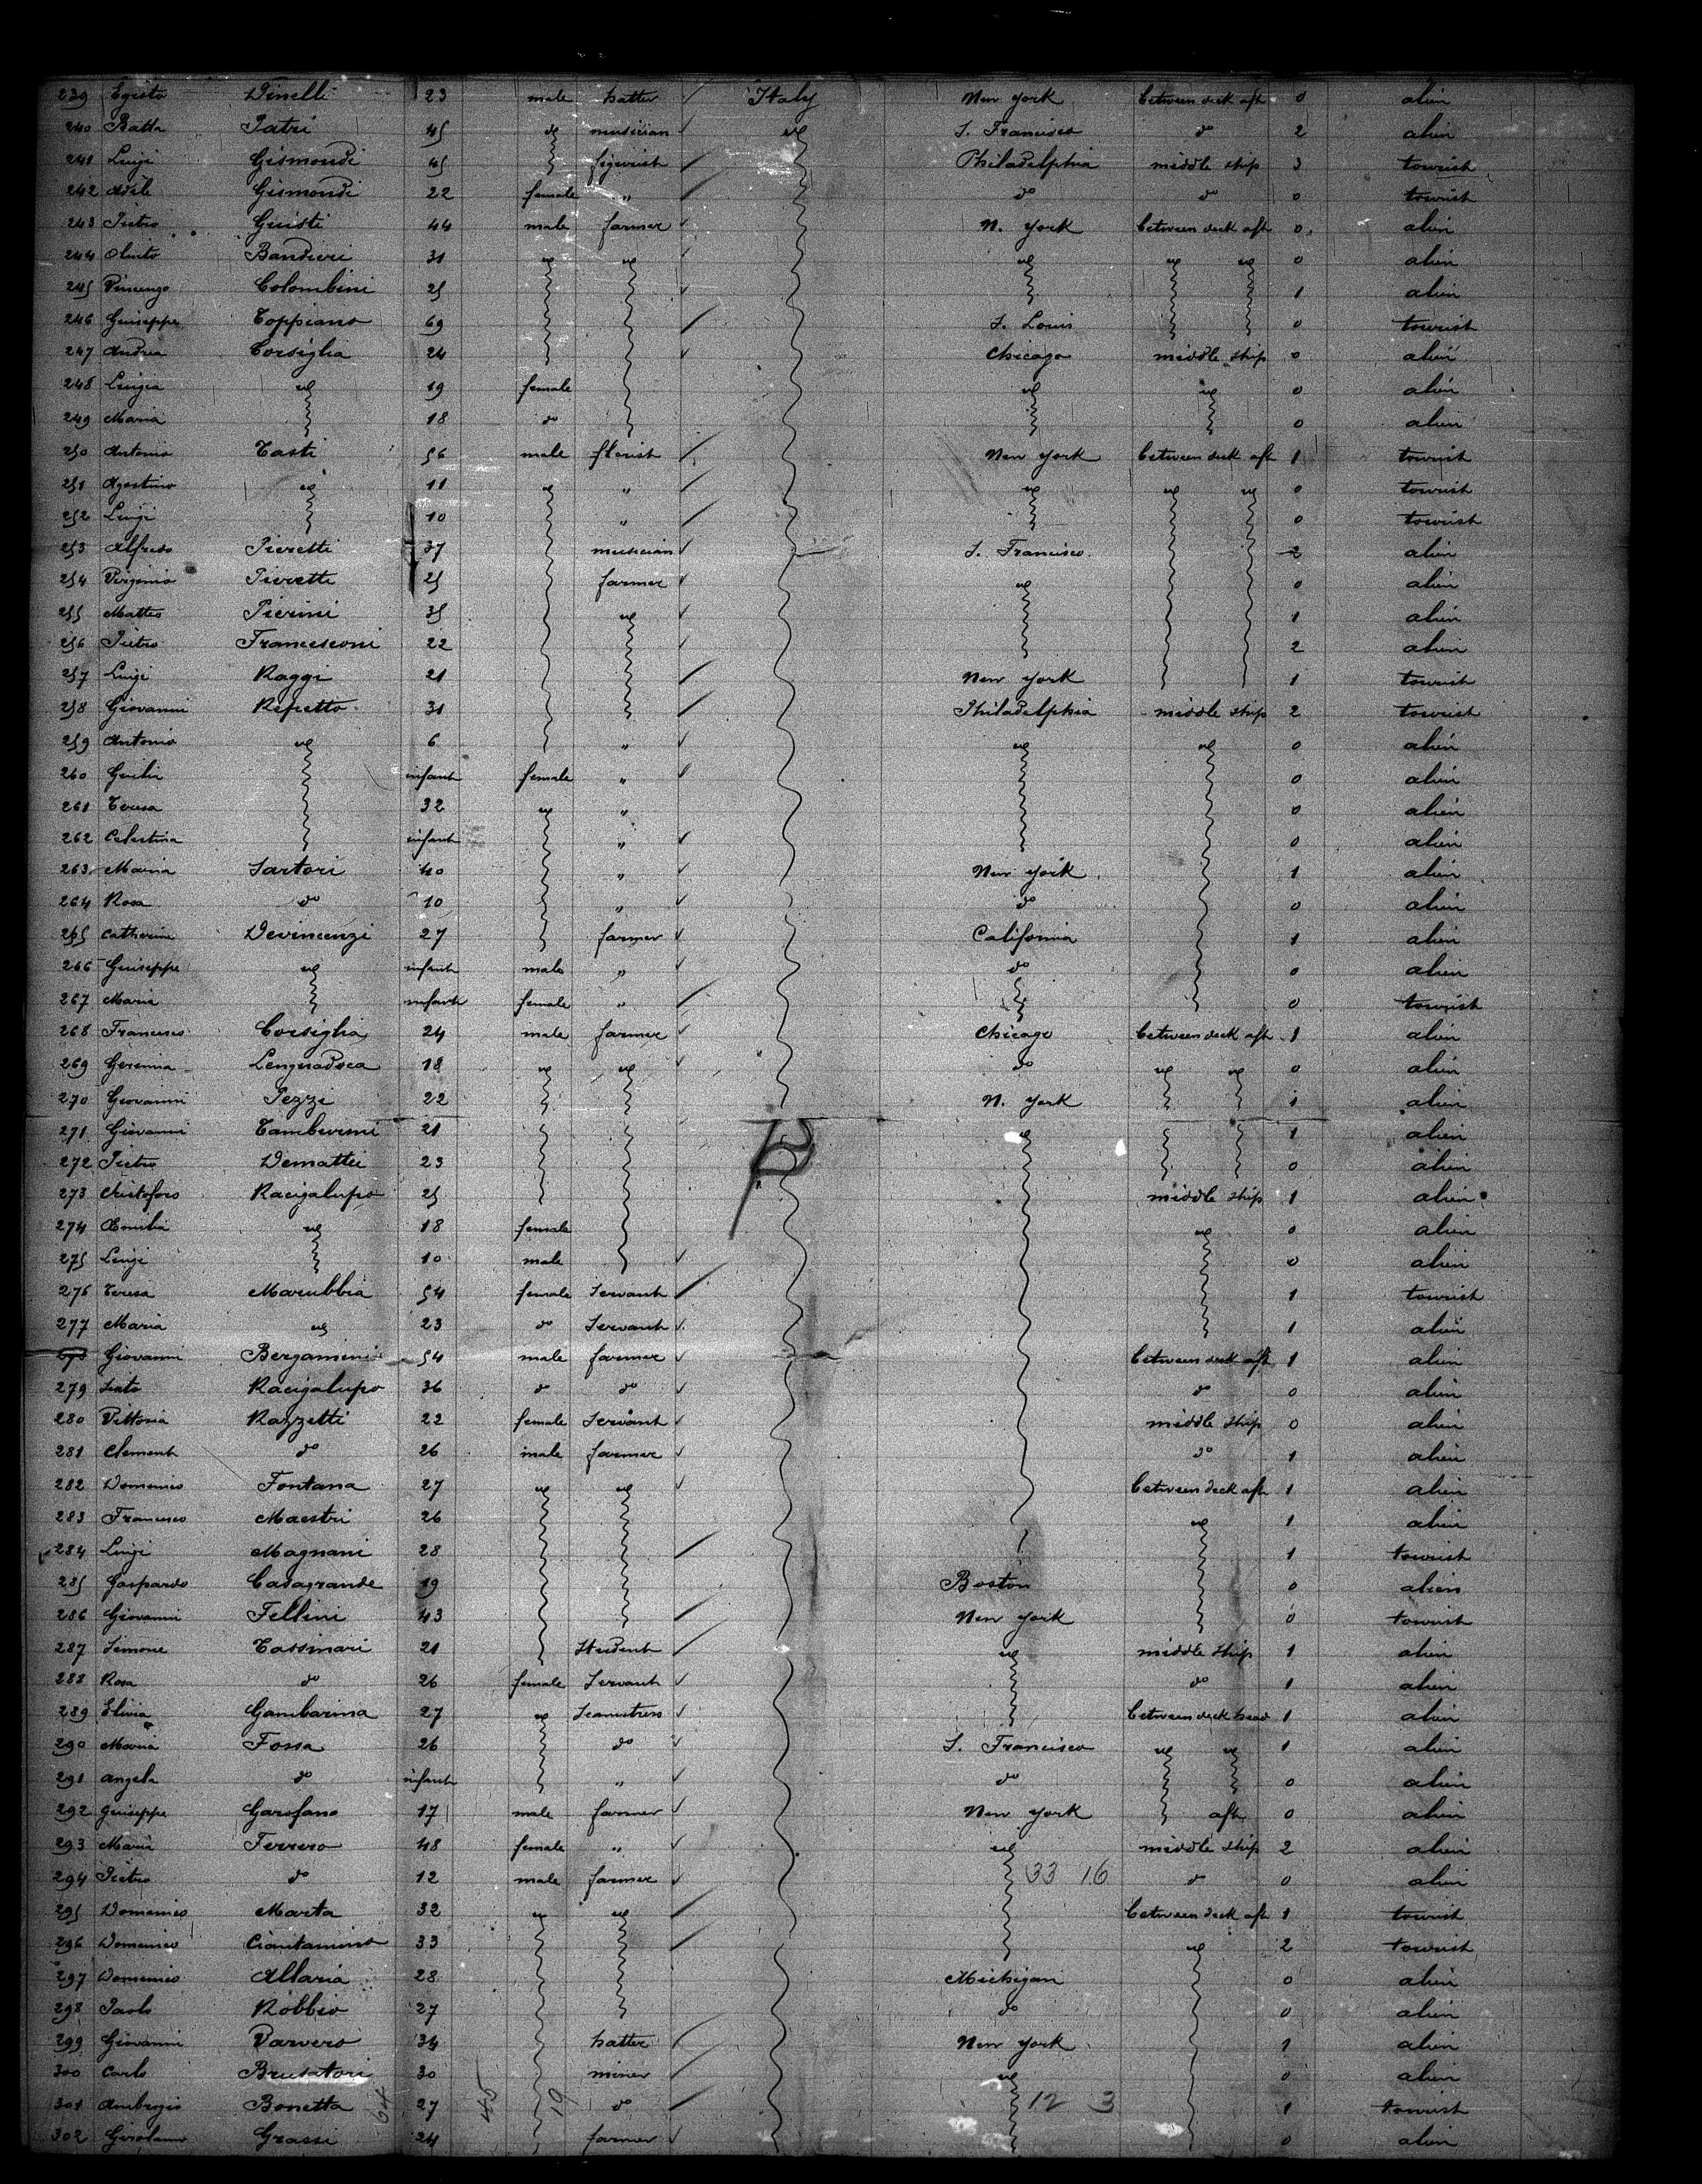 239 Egisto Dinelli 23 male hatter Italy New York between deck aft 0 alien
240 Batta Patri 45 do musician do S. Francisco do 2 alien
241 Luigi Gismondi 45 figurist Philadelphia middle ship 3 tourist
242 Adele Gismondi 22 female " do do 0 tourist
243 Pietro Guisti 44 male farmer N. York between deck aft 0 alien
244 Olinto Bandieri 31 do do do do do 0 alien
245 Vincenzo Colombini 25 1 alien
246 Guiseppe Toppiano 69 S. Louis 0 tourist
247 Andrea Corsiglia 24 Chicago middle ship 0 alien
248 Luigia do 19 female do do 0 alien
249 Maria 18 do 0 alien
250 Antonio Casti 56 male florist New York between deck aft 1 tourist
251 Agostino do 11 do " do do do 0 tourist
252 Luigi 10 " 0 tourist
253 Alfredo Pieretti 37 musician S. Francisco 2 alien
254 Virginio Pieretti 25 farmer do 0 alien
255 Matteo Pierini 35 do 1 alien
256 Pietro Francesconi 22 2 alien
257 Luigi Raggi 21 New York 1 tourist
258 Giovanni Repetto 31 Philadelphia middle ship 2 tourist
259 Antonio do 6 " do do 0 alien
260 Giulia infant female " 0 alien
261 Teresa 32 do " 0 alien
262 Celestina infant " 0 alien
263 Maria Sartori 40 " New York 1 alien
264 Rosa do 10 " do 0 alien
265 Catherina Devincenzi 27 farmer California 1 alien
266 Guiseppe do infant male " do 0 alien
267 Maria infant female " 0 tourist
268 Francesco Corsiglia 24 male farmer Chicago between deck aft 1 alien
269 Geremia 18 do do do do do 0 alien
270 Giovanni Pezzi 22 N. York 1 alien
271 Giovanni Tamburini 21 do 1 alien
272 Pietro Demattei 23 0 alien
273 Cristoforo Racigalupo 25 middle ship 1 alien
274 Emilia do 18 female do 0 alien
275 Luigi 10 male 0 alien
276 Teresa Marubbia 54 female Servant 1 tourist
277 Maria do 23 do Servant 1 alien
278 Giovanni Bergamini 54 male farmer between deck aft 1 alien
279 Santo Racigalupo 36 do do do 0 alien
280 Vittoria Razzetti 22 female Servant middle ship 0 alien
281 Clement do 26 male farmer do 1 alien
282 Domenico Fontana 27 do do between deck aft 1 alien
283 Francesco Maestri 26 do 1 alien
284 Luigi Magnani 28 1 tourist
285 Gaspardo Casagrande 19 Boston 0 alien
286 Giovanni Fellini 43 New York 0 tourist
287 Simone Cassinari 21 Student do middle ship 1 alien
288 Rosa do 26 female Servant do 1 alien
289 Gambarina 27 do Seamstress between deck head 1 alien
290 Maria Fossa 26 do S. Francisco do do 1 alien
291 Angela do infant " do 0 alien
292 Guiseppe Garofano 17 male farmer New York aft 0 alien
293 Maria Ferrero 48 female " do middle ship 2 alien
294 Pietro do 12 male farmer 33 16 do 0 alien
295 Domenico Marta 32 do do between deck aft 1 tourist
296 Domenico 33 do 2 tourist
297 Domenico Allaria 28 Michigan 0 alien
298 Paolo Robbio 27 do 0 alien
299 Giovanni Parvero 34 hatter New York 1 alien
300 Carlo Brusatori 30 miner do 0 alien
301 Ambrogio Bonetta 64 27 45 19 do 12 3 1 tourist
302 Girolamo Grassi 24 farmer 0 alien